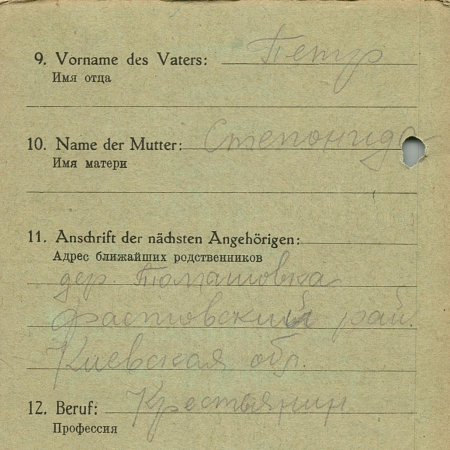 9. Vorname des Vaters: Петр
Имя отца
10. Name der Mutter: Степонида
Имя матери
11. Anschrift der nächsten Angehörigen:
Адрес ближайших родственников
дер. Томашовка
Фастовский рай.
Киевская обл.
12. Beruf: Крестьянин
Профессия